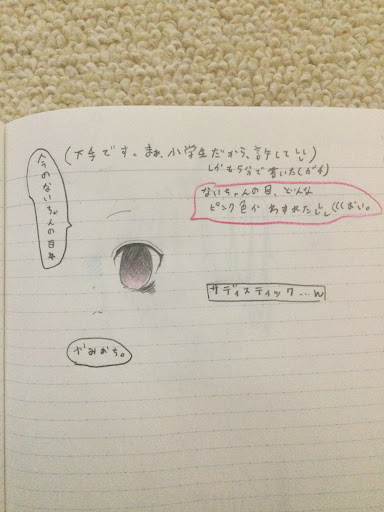 (下手です。まぁ、小学生だから、許してしし)
しかも5分で書いた(ガチ)
今のないちゃんの目↓
ないちゃんの目、どんな
ピンク色かわすれたしし(((おい。
サディスティック…w
やみおち。